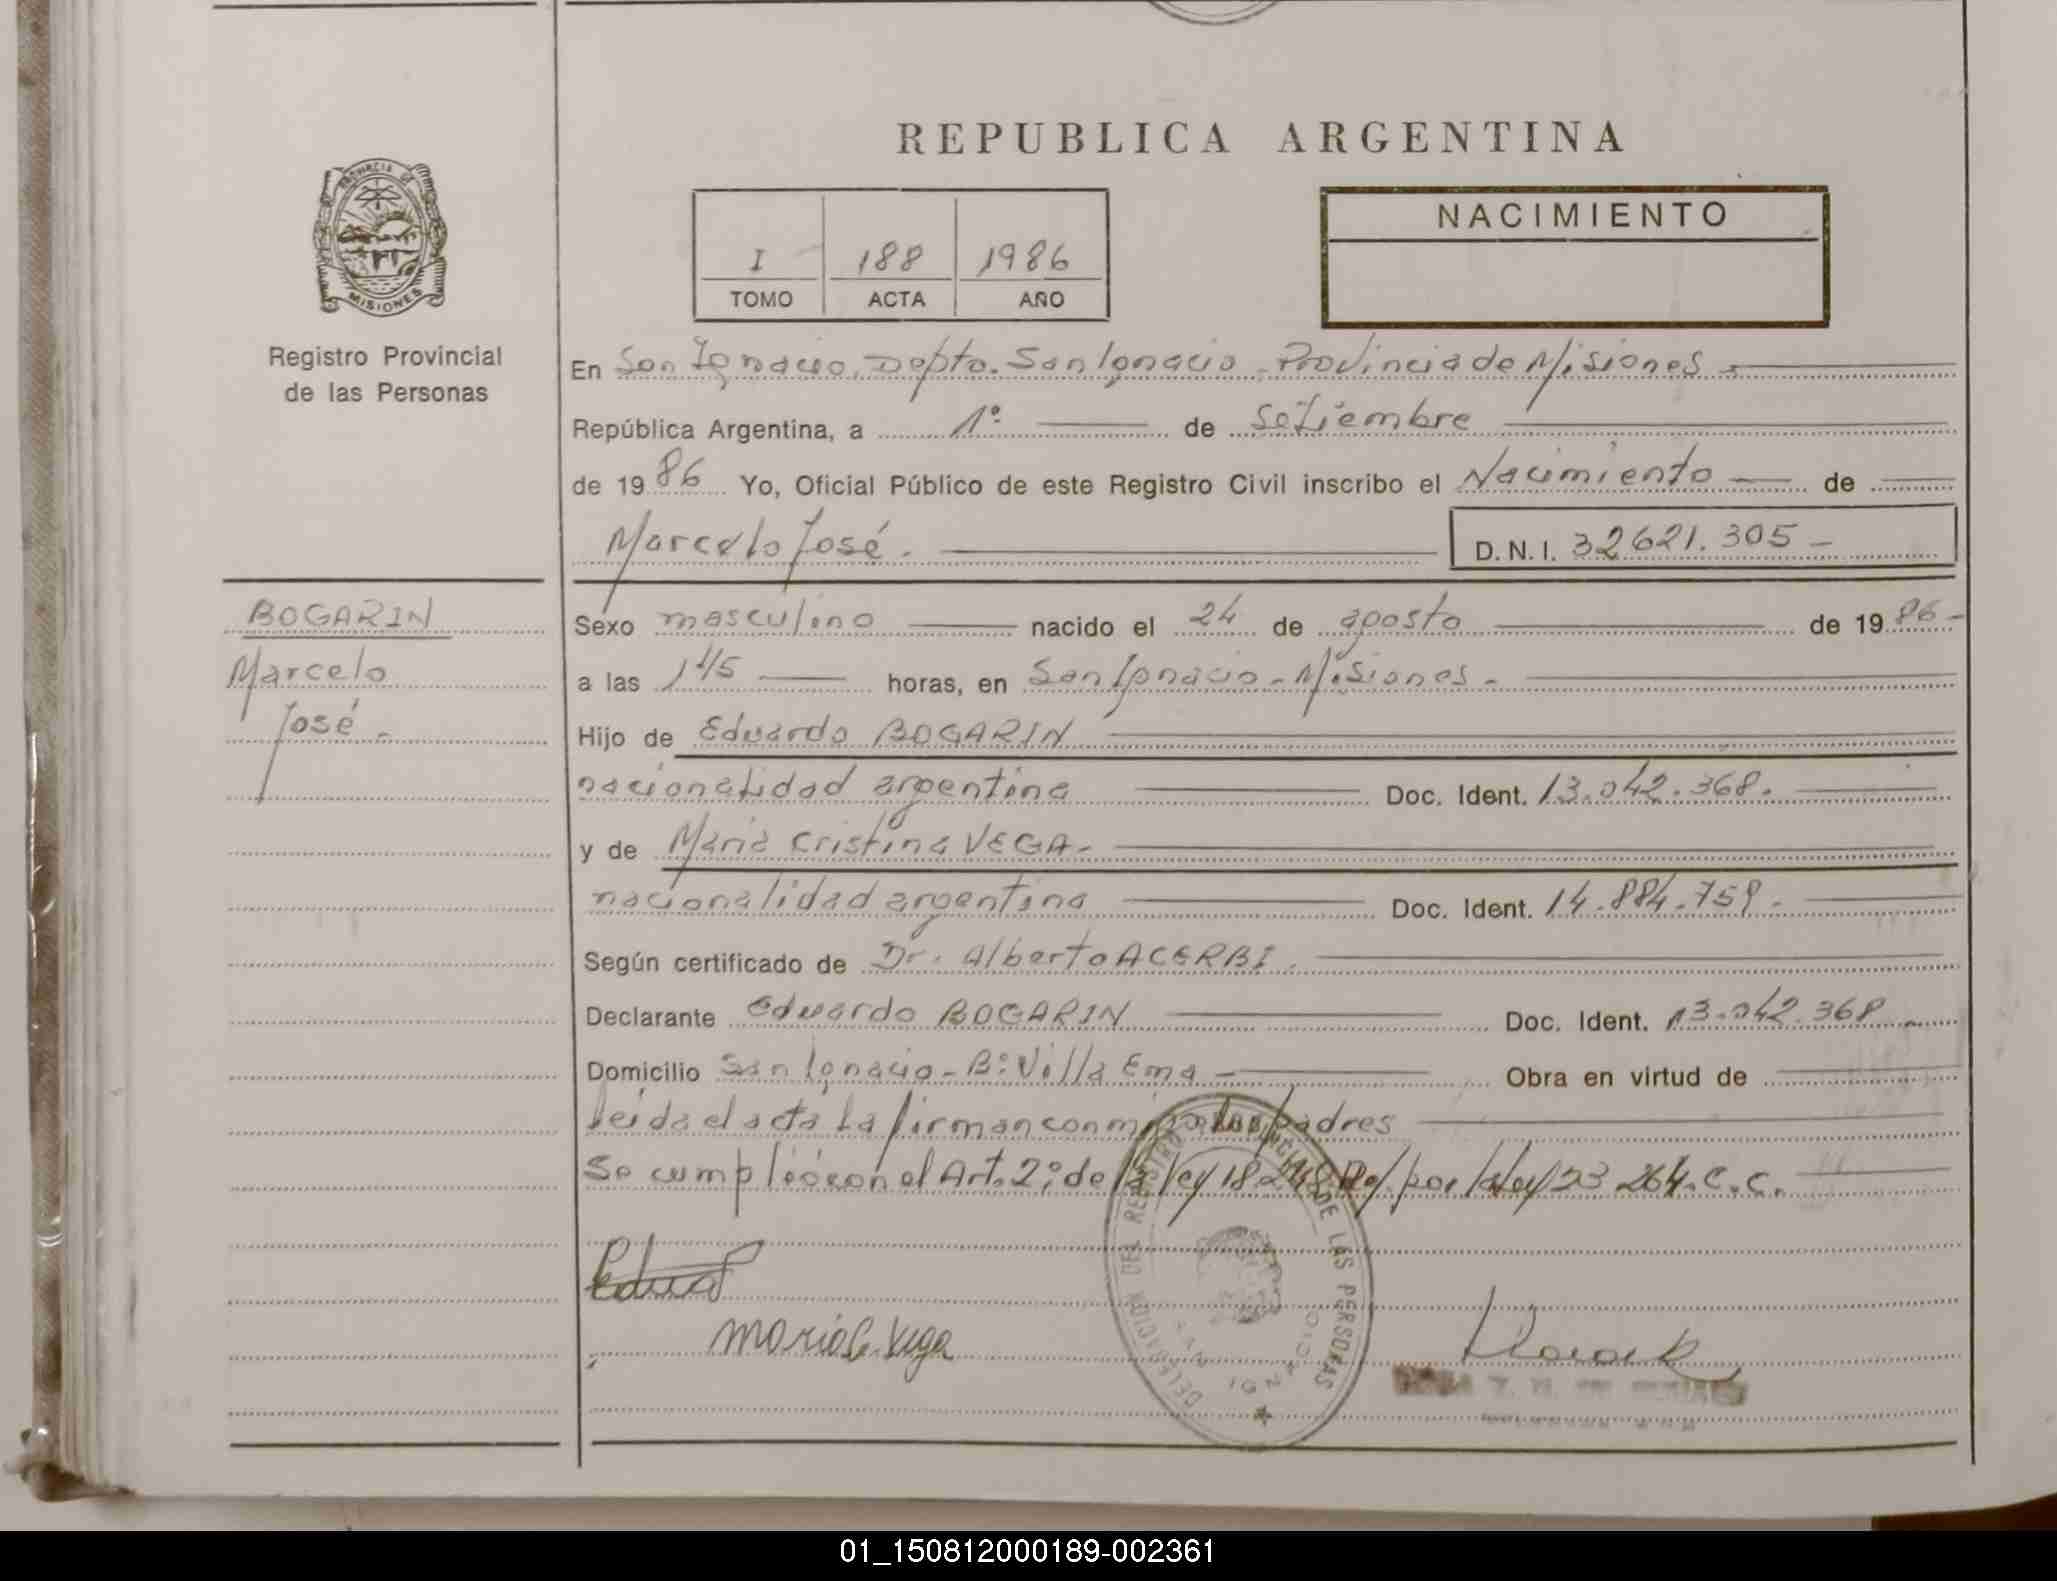 REPUBLICA ARGENTINA
PROVINCIA DE MISIONES
Registro Provincial
de las Personas
I 188 1986
TOMO ACTA AÑO
NACIMIENTO
En San Ignacio, Depto. San Ignacio - Provincia de Misiones -
República Argentina, a 1º de Setiembre
de 1986 Yo, Oficial Público de este Registro Civil inscribo el Nacimiento de
Marcelo José. D.N.I. 32621.305 -
BOGARIN
Marcelo
José -
Sexo masculino nacido el 24 de agosto de 1986 -
a las 1 45 horas, en San Ignacio - Misiones -
Hijo de Eduardo BOGARIN
nacionalidad argentina Doc. Ident. 13.042.368.
y de Maria Cristina VEGA -
nacionalidad argentina Doc. Ident. 14.884.759.
Según certificado de Dr. Alberto ACERBI.
Declarante Eduardo BOGARIN Doc. Ident. 13.042.368
Domicilio San Ignacio - Bº Villa Ema - Obra en virtud de
Leida el acta la firman conmigo los padres
Se cumplió con el Art. 2º de la ley 18248 por ley 23264. C.C.
Maria C. Vega
DELEGACION DEL REGISTRO PROVINCIAL DE LAS PERSONAS
SAN IGNACIO
01_150812000189-002361